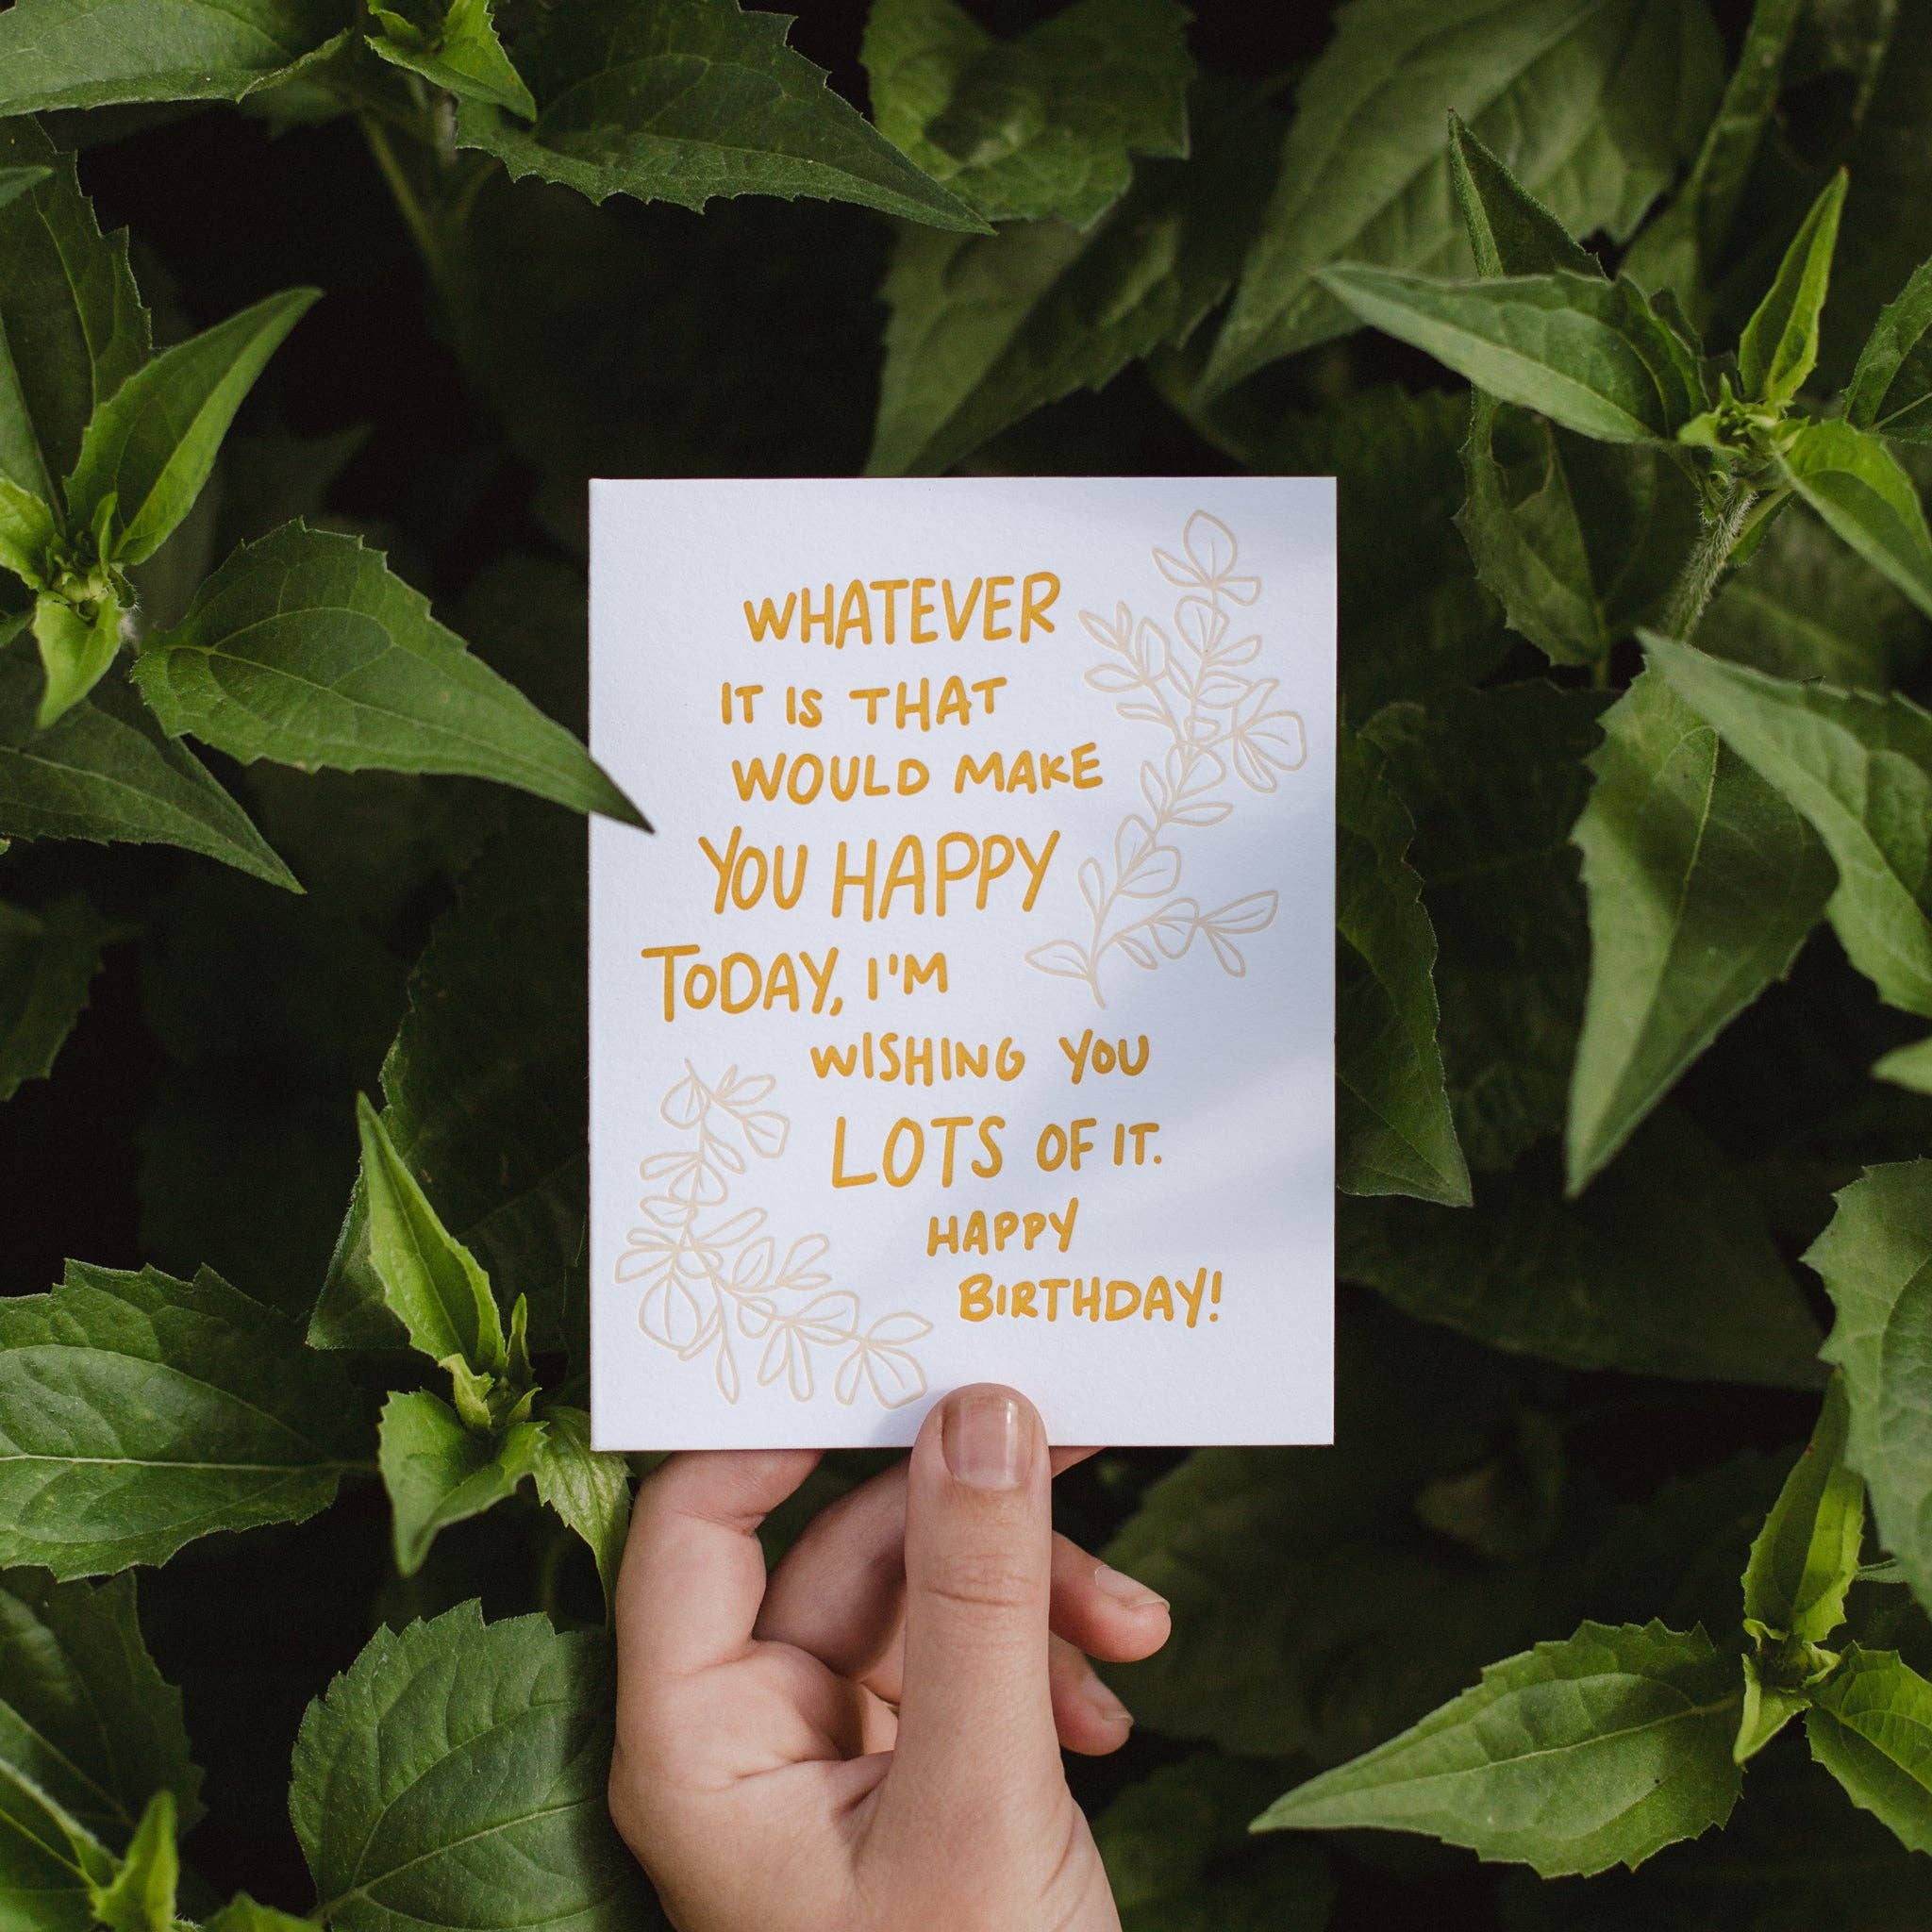 WHATEVER
IT IS THAT
WOULD MAKE
YOU HAPPY
TODAY, I'M
WISHING YOU
LOTS OF IT.
HAPPY
BIRTHDAY!